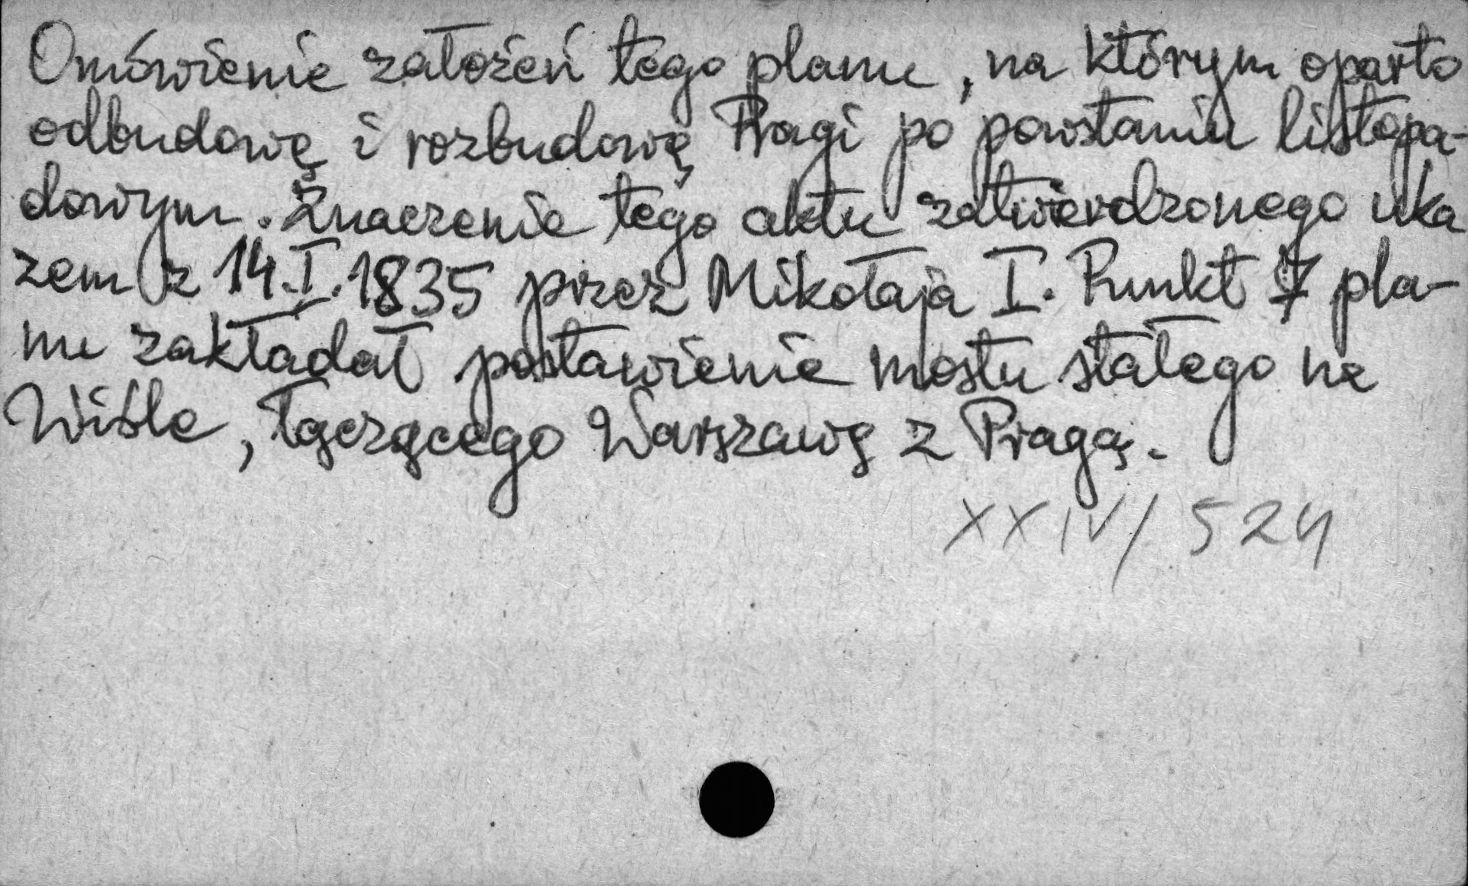 Omówienie założeń tego planu, na którym oparto
odbudowę i rozbudowę Pragi po powstaniu listopa-
dowym. Znaczenie tego aktu zatwierdzonego uka
zem z 14.I.1835 przez Mikołaja I. Punkt 7 pla-
nu zakładał postawienie mostu stałego na
Wiśle, łączącego Warszawę z Pragą.
XXIV/524